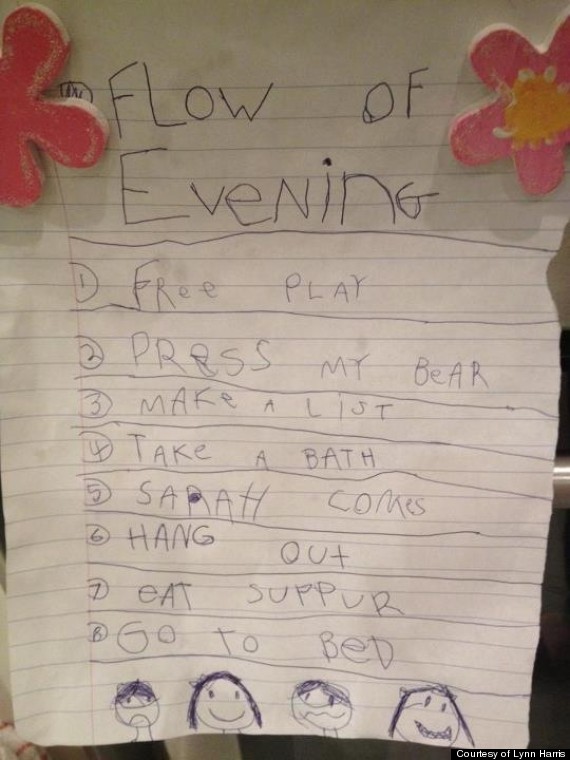 FLOW OF
EveNiNG
1 FRee PLAY
2 PRESS MY BeAR
3 MAKe A LiST
4 TAKe A BATH
5 SARAH COMes
6 HANG OUt
7 eAT SUPPUR
8 GO TO BeD
Courtesy of Lynn Harris